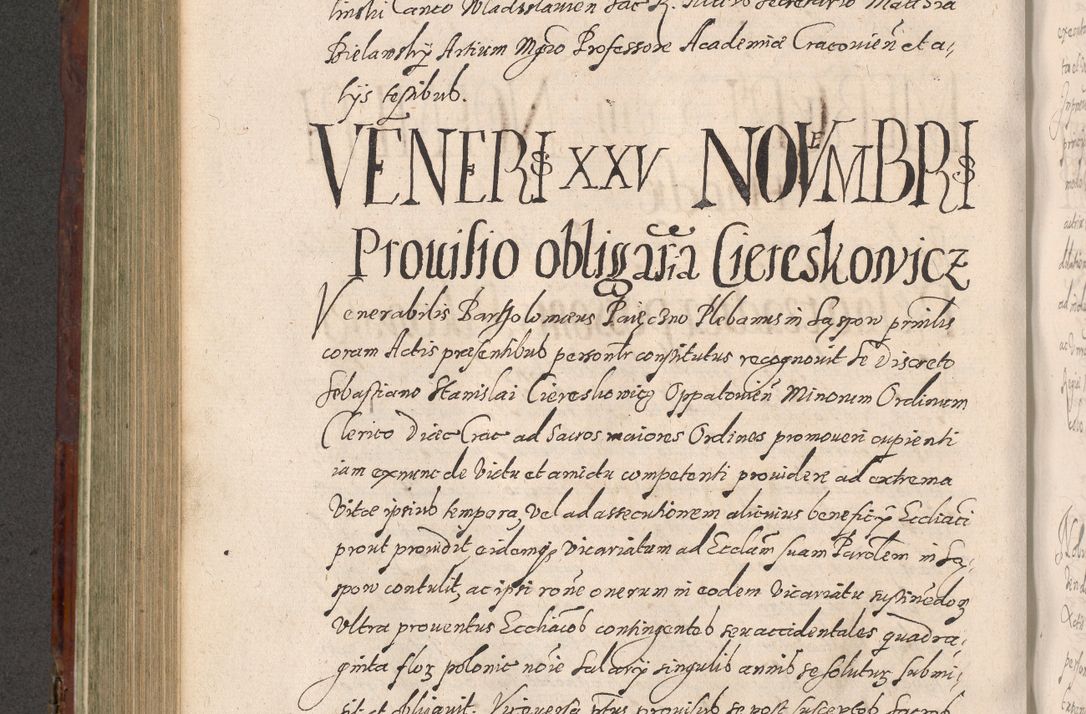 linski Canco Wladislauien Sac R.
Bielawskÿ Artium Mgro Professore Academiæ Cracouien̄ et a,
lÿs testibus.
VENERIS XXV NOVEMBRIS
Prouisio obligat̄ria Ciereskowicz
Venerabilis Bartholomæus Paięczno Plebanus in Łąspow prinlis
coram Actis præsentibus persontr constitutus recognouit se Discreto
Sebastiano Stanislai Ciereskowicz Oppatouien̄ Minorum Ordinum
Clerico Diæc Crac ad Sacros maiores Ordines promoueri cupienti
iam exnunc de Victu et amictu competenti prouidere ad extrema
Vitæ ipsius tempora, Vel ad assecutionem alicuius beneficÿ Eccliaci
prout prouidit, eidemq; Vicariatum ad Ecclam̄ suam Parolem̄ in Łą,
spow contulit, ac ipsi rone onerum in eodem Vicariatu sustinedoꝝ
Vltra prouentus Ecchiacos contingentes seu accidentales quadra,
ginta floꝝ polonic noīe Salarÿ singulis annis se soluturꝝ submi,
sit et obligauit. Viceuersa ptus prouisus se post susceptos Sacros